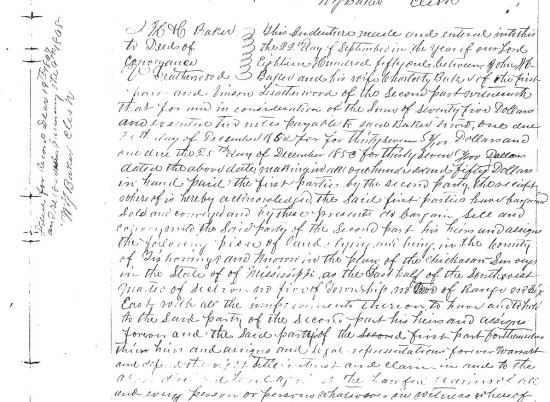 W J Baker Clerk
J H H Baker
to Deeds of
Conveyance
This Indenture made and entered into this
the 22 day of September in the year of our Lord
Eighteen Hundred fifty one between John H
Baker and his wife Charlotty Baker of the first
part and Leatherwood of the second part witnesseth
that for and in consideration of the Sum of Seventy five Dollars
and executed two notes payable to said Baker one due
25th day of December 1852 for thirty seven Dollars and
one due the 25th day of December 1853 for thirty seven Dollars
dated the above date, making in all one hundred and fifty Dollars
in hand paid the first parties by the second party, the receipt
where of is hereby acknowledged the said first parties have bargained
sold and conveyed and by these presents do bargain sell and
convey unto the said party of the second part his heirs and assigns
the following piece of land lying and being in the County
of Tishomingo and known in the plan of the Chickasaw Surveys
in the State of of Mississippi, as the East half of the Southwest
Quarter of Section no five of Township no two of Range no
East with all the improvements thereon to have and to hold
to the said party of the second part his heirs and assigns
forever and the said party of the second first part for themselves
their heirs and assigns and legal representatives forever warrant
and defend the right title interest and claim in and to the
land against the lawful claims of all
and every person or persons whatsoever in witness where of
W J Baker Clerk